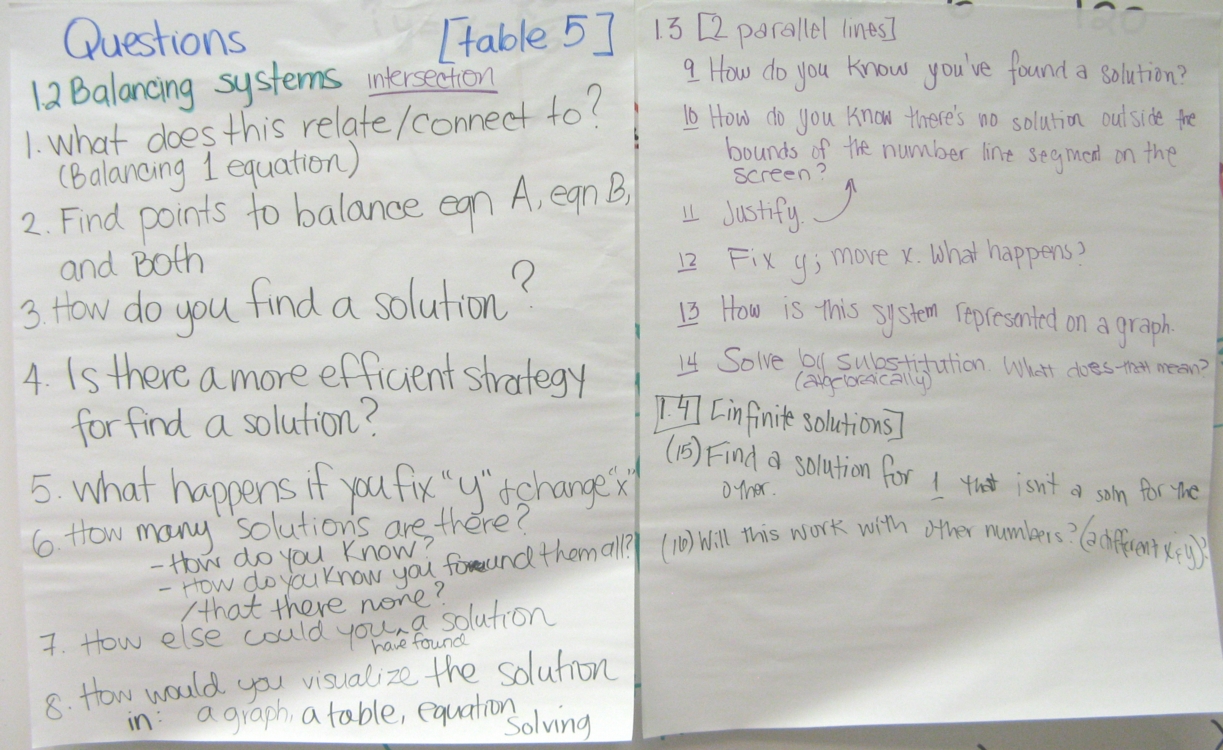 Questions [table 5]
1.2 Balancing systems intersection
1. What does this relate/connect to?
(Balancing 1 equation)
2. Find points to balance eqn A, eqn B,
and Both
3. How do you find a solution?
4. Is there a more efficient strategy
for find a solution?
5. What happens if you fix "y" + change "x"
6. How many solutions are there?
- How do you know?
- How do you know you found them all?
/that there none?
7. How else could you have found a solution
8. How would you visualize the solution
in: a graph, a table, equation
solving
1.3 [2 parallel lines]
9 How do you know you've found a solution?
10 How do you know there's no solution outside the
bounds of the number line segment on the
screen?
11 Justify.
12 Fix y; move x. What happens?
13 How is this system represented on a graph.
14 Solve by substitution. What does that mean?
(algebraically)
1.4 [infinite solutions]
(15) Find a solution for 1 that isn't a soln for the
other.
(16) Will this work with other numbers? (2 different x + y)?
120